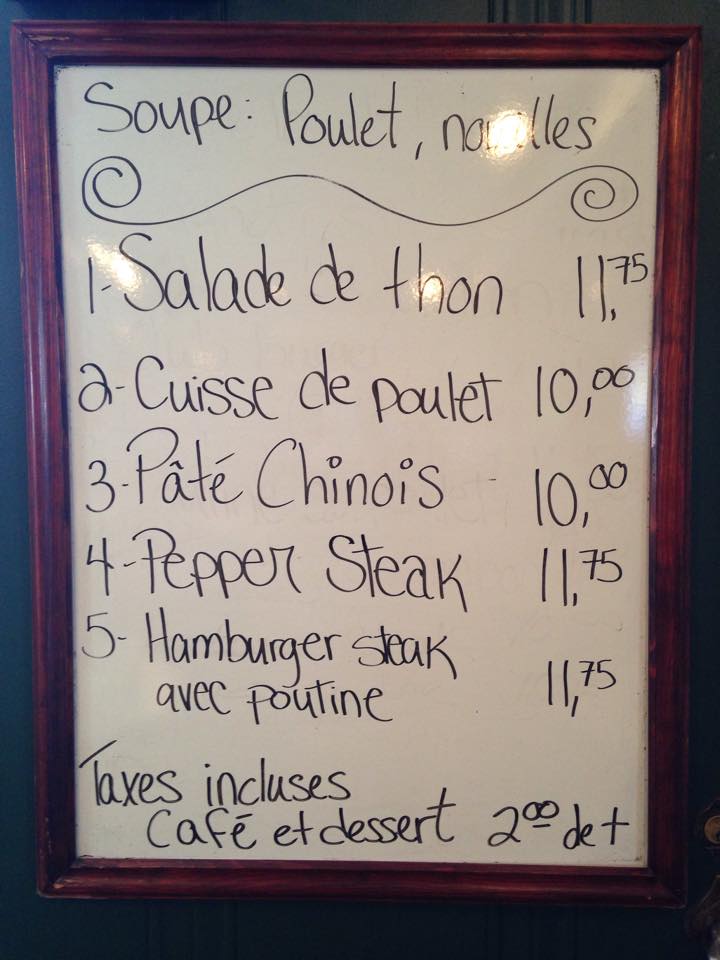 Soupe: Poulet, nouilles
1-Salade de thon 11,75
2-Cuisse de poulet 10,00
3-Pâté Chinois - 10,00
4-Pepper Steak 11,75
5- Hamburger steak
avec poutine 11,75
Taxes incluses
Café et dessert 200 de +